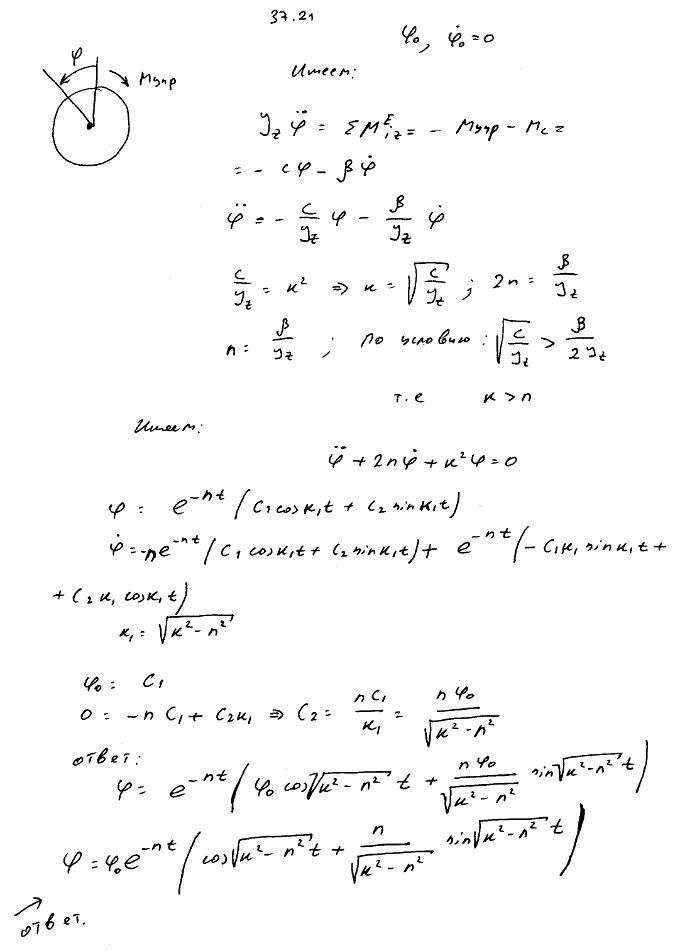 37.21
φ₀, φ̇₀ = 0
φ
Mупр
Имеем:
J_z φ̈ = Σ M^E_{iz} = - Mупр - Mс =
= - cφ - βφ̇
φ̈ = - c/J_z φ - β/J_z φ̇
c/J_z = к² ⇒ к = √(c/J_z) ; 2n = β/J_z
n = β/J_z ; По условию: √(c/J_z) > β/2J_z
т.е к > n
Имеем:
φ̈ + 2nφ̇ + к²φ = 0
φ = e^{-nt} (C₁ cos к₁t + C₂ sin к₁t)
φ̇ = -ne^{-nt} (C₁ cos к₁t + C₂ sin к₁t) + e^{-nt} (- C₁к₁ sin к₁t +
+ C₂ к₁ cos к₁t)
к₁ = √(к² - n²)
φ₀ = C₁
0 = -n C₁ + C₂к₁ ⇒ C₂ = nC₁/к₁ = nφ₀/√(к² - n²)
ответ:
φ = e^{-nt} (φ₀ cos√(к² - n²) t + nφ₀/√(к² - n²) sin√(к² - n²) t)
φ = φ₀e^{-nt} (cos√(к² - n²) t + n/√(к² - n²) sin√(к² - n²) t)
ответ.